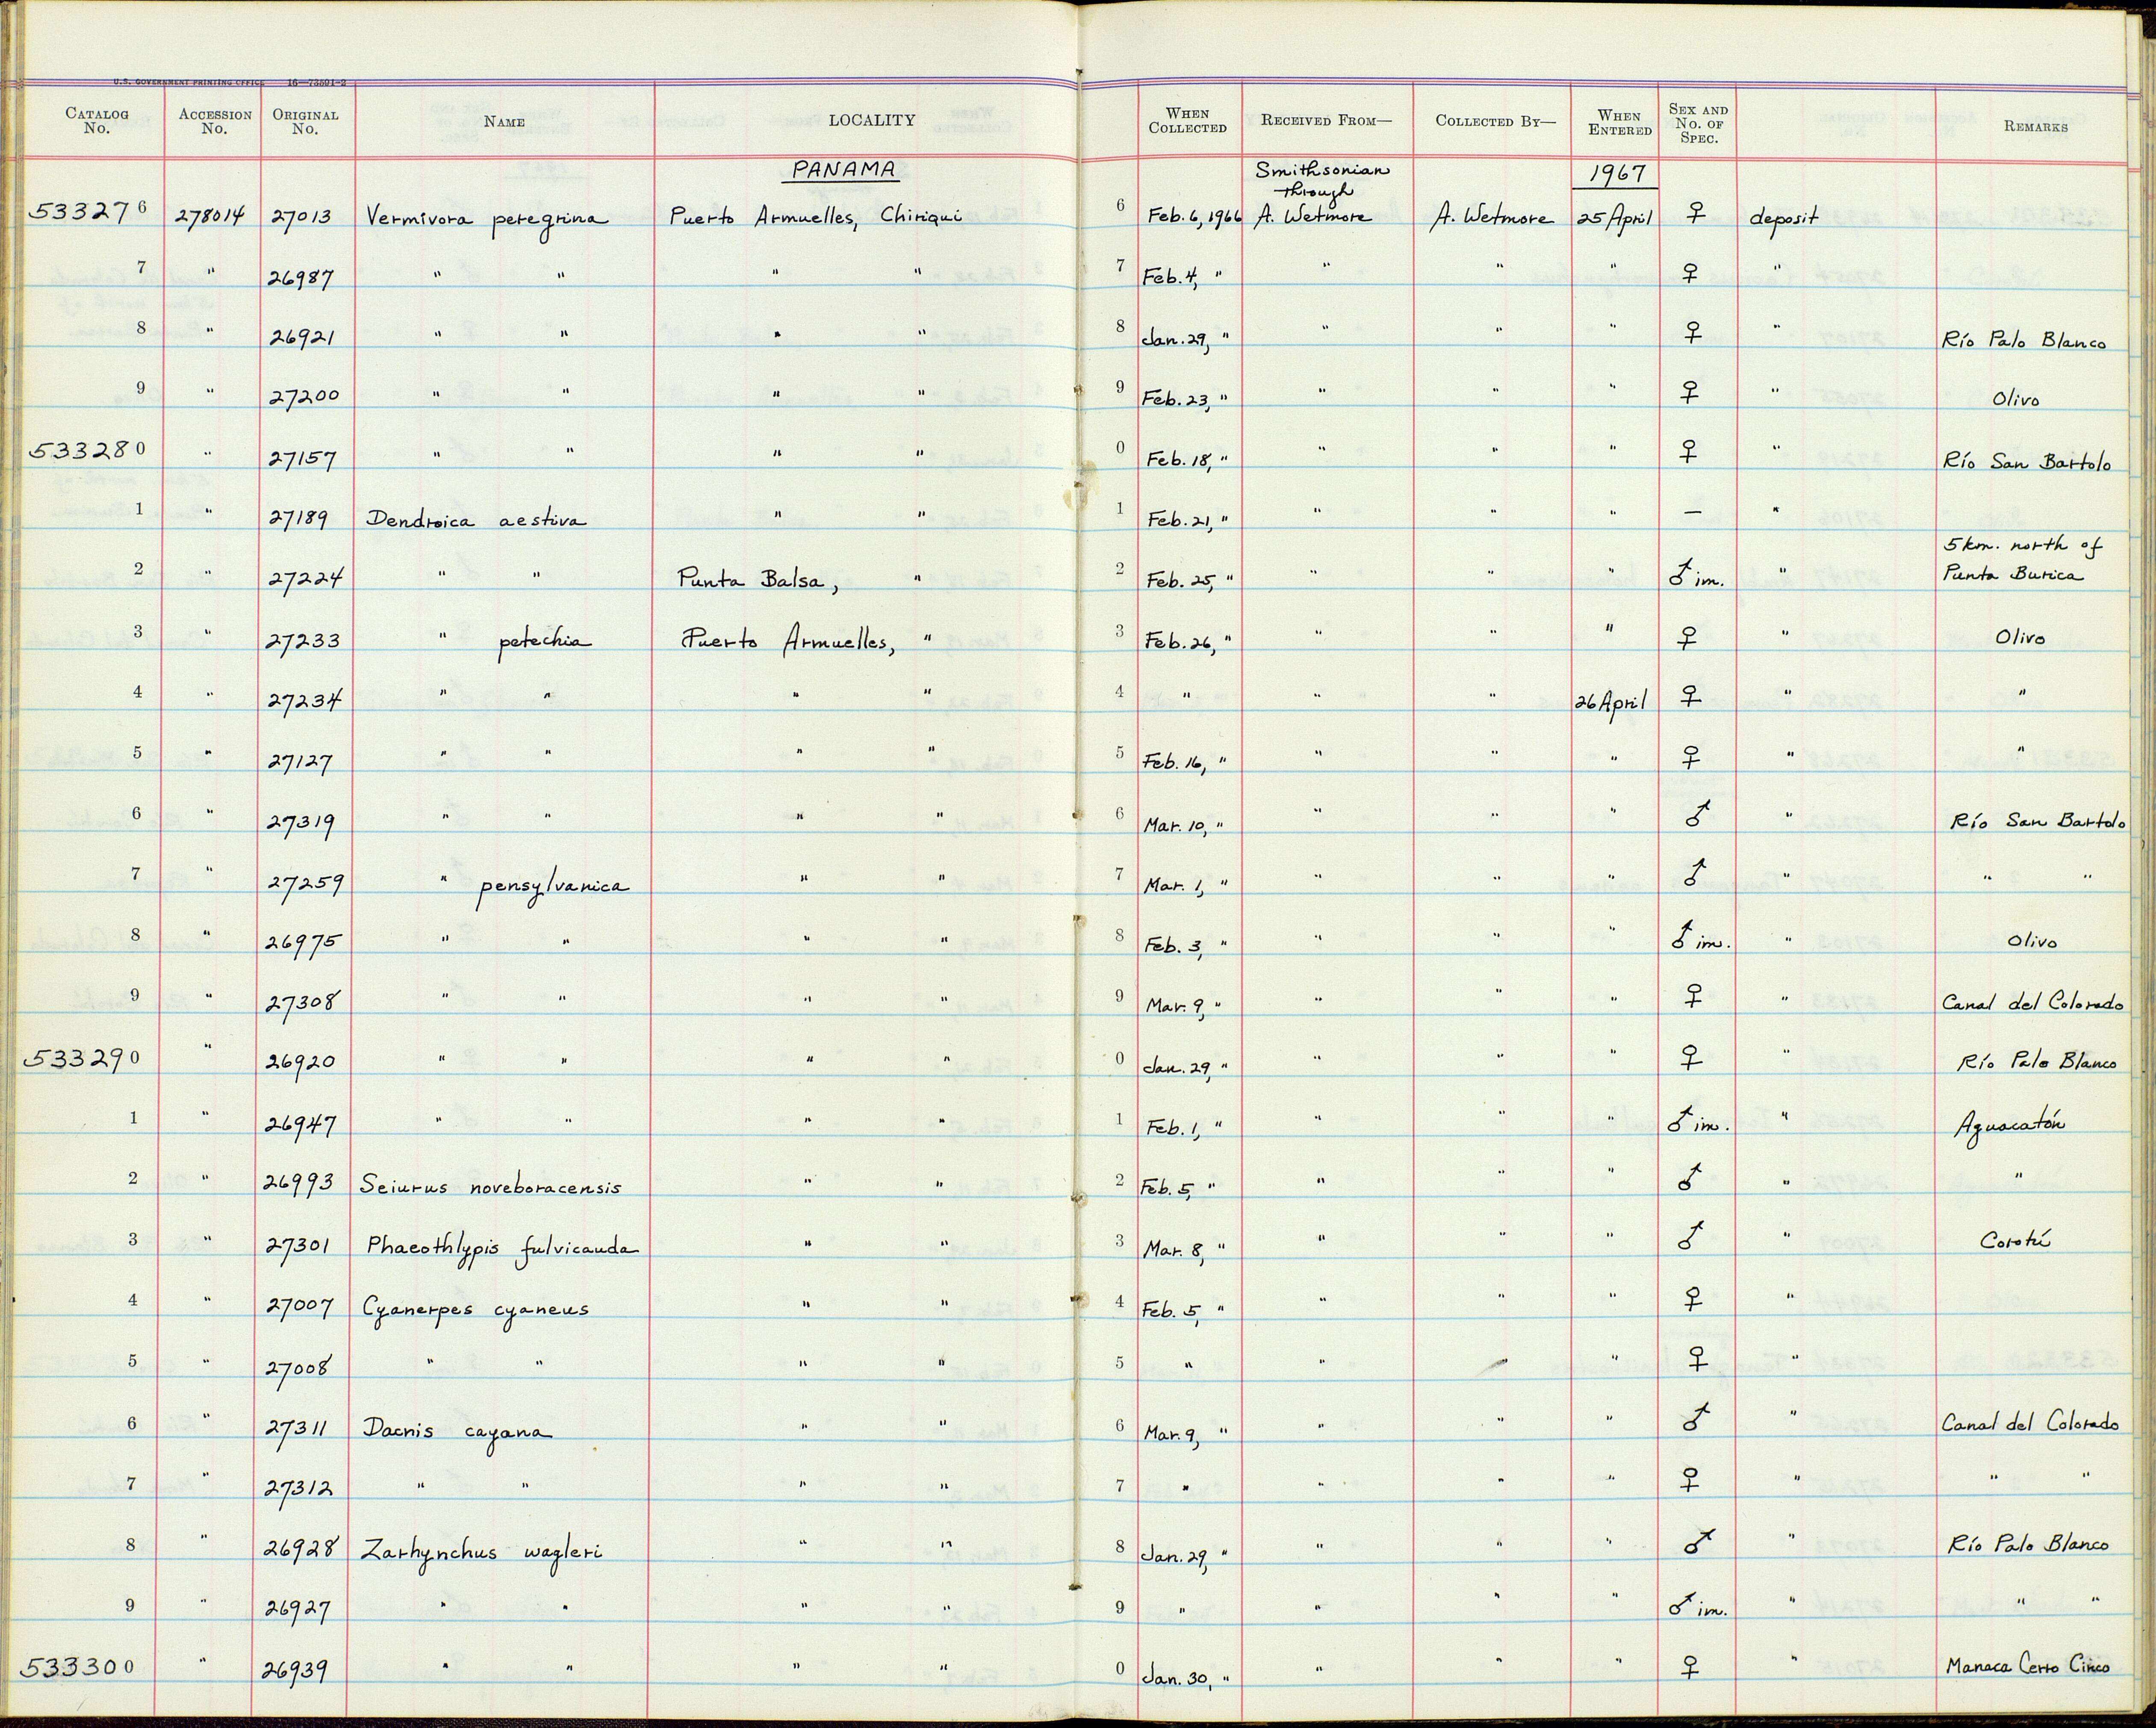 U.S. GOVERNMENT PRINTING OFFICE 16—73591-2
CATALOG No. ACCESSION No. ORIGINAL No. NAME LOCALITY WHEN COLLECTED RECEIVED FROM— COLLECTED BY— WHEN ENTERED SEX AND No. OF SPEC. REMARKS
PANAMA Smithsonian through 1967
533276 278014 27013 Vermivora peregrina Puerto Armuelles, Chiriqui 6 Feb. 6, 1966 A. Wetmore A. Wetmore 25 April ♀ deposit
7 " 26987 " " " " 7 Feb. 4, " " " " ♀ "
8 " 26921 " " " " 8 Jan. 29, " " " " ♀ " Río Palo Blanco
9 " 27200 " " " " 9 Feb. 23, " " " " ♀ " Olivo
533280 " 27157 " " " " 0 Feb. 18, " " " " ♀ " Río San Bartolo
1 " 27189 Dendroica aestiva " " 1 Feb. 21, " " " " — "
2 " 27224 " " Punta Balsa, " 2 Feb. 25, " " " " ♂ im. " 5 km. north of Punta Burica
3 " 27233 " petechia Puerto Armuelles, " 3 Feb. 26, " " " " ♀ " Olivo
4 " 27234 " " " " 4 " " " 26 April ♀ " "
5 " 27127 " " " " 5 Feb. 16, " " " " ♀ " "
6 " 27319 " " " " 6 Mar. 10, " " " " ♂ " Río San Bartolo
7 " 27259 " pensylvanica " " 7 Mar. 1, " " " " ♂ " " "
8 " 26975 " " " " 8 Feb. 3, " " " " ♂ im. " Olivo
9 " 27308 " " " " 9 Mar. 9, " " " " ♀ " Canal del Colorado
533290 " 26920 " " " " 0 Jan. 29, " " " " ♀ " Río Palo Blanco
1 " 26947 " " " " 1 Feb. 1, " " " " ♂ im. " Aguacatón
2 " 26993 Seiurus noveboracensis " " 2 Feb. 5, " " " " ♂ " "
3 " 27301 Phaeothlypis fulvicauda " " 3 Mar. 8, " " " " ♂ " Corotú
4 " 27007 Cyanerpes cyaneus " " 4 Feb. 5, " " " " ♀ "
5 " 27008 " " " " 5 " " " ♀ "
6 " 27311 Dacnis cayana " " 6 Mar. 9, " " " " ♂ " Canal del Colorado
7 " 27312 " " " " 7 " " " " ♀ " " "
8 " 26928 Zarhynchus wagleri " " 8 Jan. 29, " " " " ♂ " Río Palo Blanco
9 " 26927 " " " " 9 " " " " ♂ im. " " "
533300 " 26939 " " " " 0 Jan. 30, " " " " ♀ " Manaca Cerro Cinco